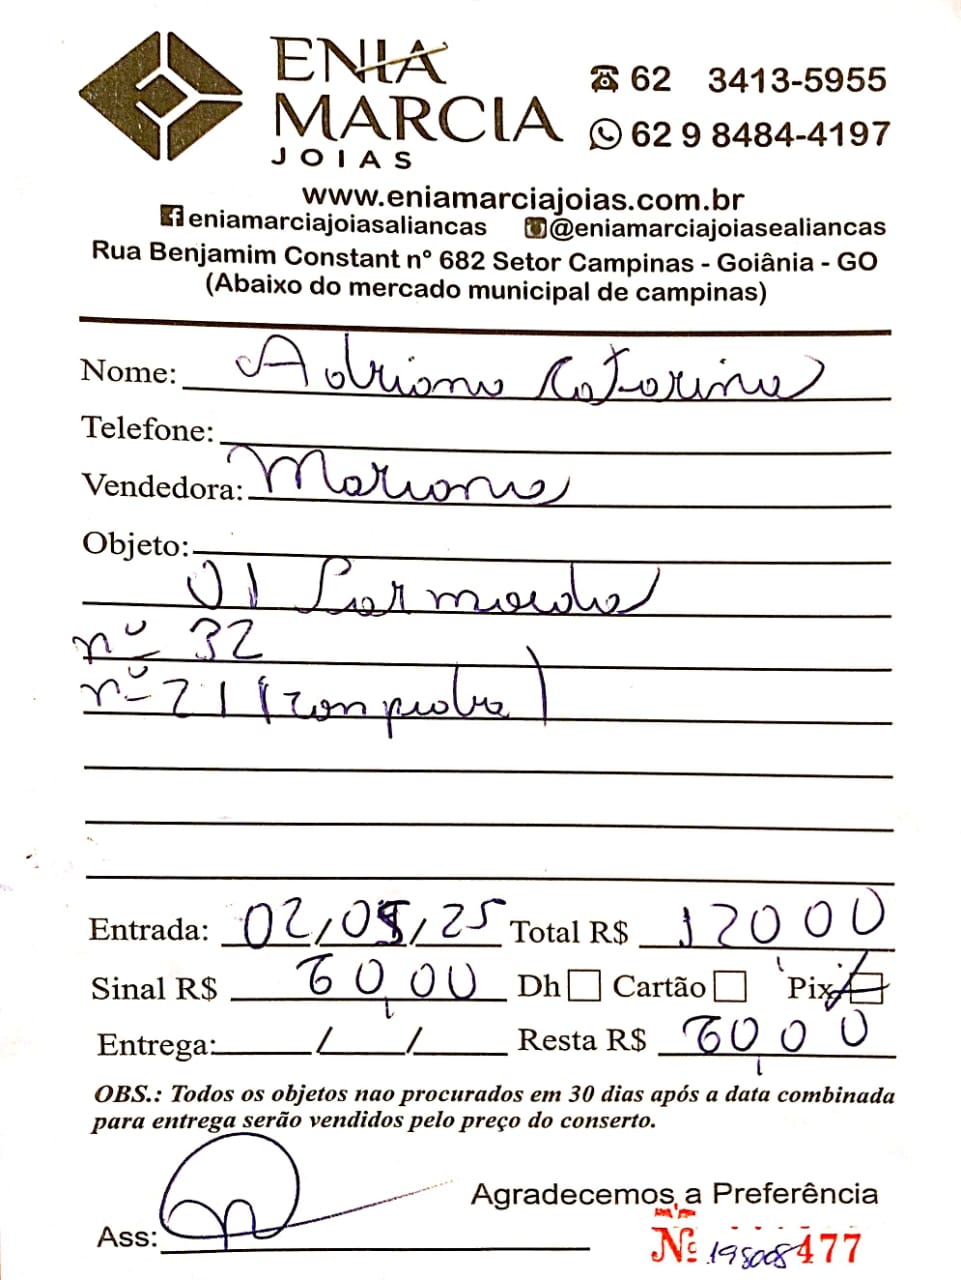 ENIA
MARCIA
JOIAS
62 3413-5955
62 9 8484-4197
www.eniamarciajoias.com.br
eniamarciajoiasaliancas @eniamarciajoiasealiancas
Rua Benjamim Constant nº 682 Setor Campinas - Goiânia - GO
(Abaixo do mercado municipal de campinas)
Nome: Adriano Catarina
Telefone:
Vendedora: Mariana
Objeto:
01
nº 32
nº 21 (com pedra)
Entrada: 02/05/25 Total R$ 120,00
Sinal R$ 60,00 Dh Cartão Pix
Entrega: / / Resta R$ 60,00
OBS.: Todos os objetos nao procurados em 30 dias após a data combinada
para entrega serão vendidos pelo preço do conserto.
Agradecemos a Preferência
Ass:
Nº 477